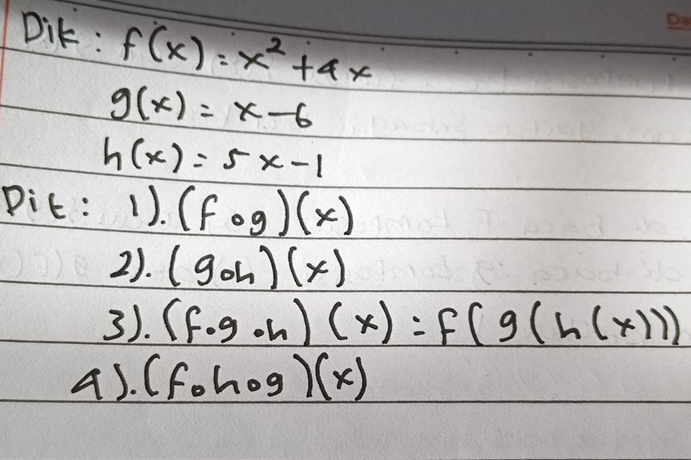 Dik : f(x) = x² + 4x
g(x) = x - 6
h(x) = 5x - 1
Dit : 1). (f o g)(x)
2). (g o h)(x)
3). (f o g o h)(x) = f(g(h(x)))
4). (f o h o g)(x)